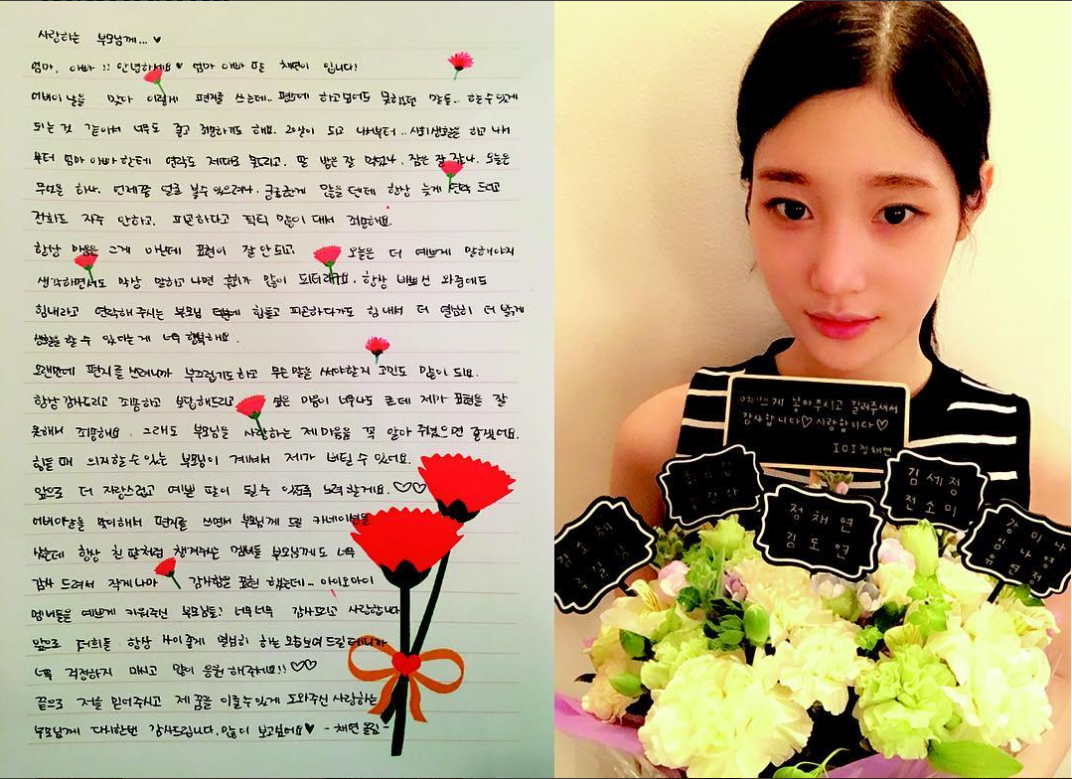 사랑하는 부모님께... ♥
엄마, 아빠 !! 안녕하세요♥ 엄마 아빠 딸 채연이 입니다!
어버이날을 맞아 이렇게 편지를 쓰는데.. 평소에 하고싶어도 못하였던 말들.. 하는수있게
되는 것 같아서 너무도 좋고 죄송하기도 해요. 20살이 되고 나서부터.. 사회생활을 하고 나서
부터 엄마 아빠한테 연락도 제대로 못드리고. 딸 밥은 잘 먹었나. 잠은 잘 잤나. 오늘은
무엇을 하나. 언제쯤 얼굴 볼수 있으려나. 궁금한게 많을 텐데 항상 늦게 연락 드리고
전화도 자주 안하고. 피곤하다고 틱틱 많이 대서 죄송해요.
항상 마음은 그게 아닌데 표현이 잘 안되고 오늘은 더 예쁘게 말해야지
생각하면서도 막상 말하고 나면 후회가 많이 되더라구요. 항상 바쁘신 와중에도
힘내라고 연락해 주시는 부모님 덕분에 힘들고 피곤하다가도 힘내서 더 열심히 더 밝게
생활을 할 수 있다는 게 너무 행복해요.
오랜만에 편지를 쓰려니까 부끄럽기도하고 무슨 말을 써야할지 고민도 많이 되요.
항상 감사드리고 죄송하고 보답해드리고 싶은 마음이 너무나도 큰데 제가 표현을 잘
못해서 죄송해요. 그래도 부모님을 사랑하는 제 마음을 꼭 알아 주셨으면 좋겠어요.
힘들 때 의지할수있는 부모님이 계셔서 제가 버틸 수 있어요.
앞으로 더 자랑스럽고 예쁜 딸이 될수 있도록 노력할게요. ♡♡
어버이날을 맞이해서 편지를 쓰면서 부모님께 드릴 카네이션을
샀는데 항상 친 딸처럼 챙겨주는 멤버들 부모님께도 너무
감사 드려서 작게나마 감사함을 표현 했는데.. 아이오아이
멤버들을 예쁘게 키워주신 부모님들! 너무너무 감사하고 사랑합니다
앞으로 저희들 항상 사이좋게 열심히 하는 모습보여 드릴테니까
너무 걱정하지 마시고 많이 응원 해주세요!! ♡♡
끝으로 저를 믿어주시고 제 꿈을 이룰수있게 도와주신 사랑하는
부모님께 다시한번 감사드립니다. 많이 보고싶어요♥ - 채연 올림 -
예쁘게 낳아주시고 길러주셔서
감사합니다♡ 사랑합니다♡
IOI 정채연
김세정
전소미
정채연
김도연
강미나
임나영
유연정